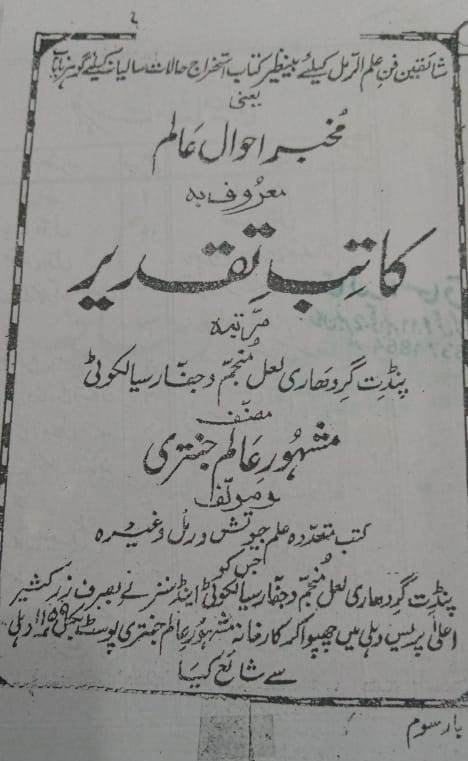 شائقین فن علم الرمل کیلئے بینظیر کتاب استخراج حالات سالیانہ کیلئے گوہر نایاب
یعنی
مخبر احوال عالم
معروف بہ
کاتب تقدیر
مرتبہ
پنڈت گردھاری لعل منجم و جفار سیالکوٹی
مصنف
مشہور عالم جنتری
و مؤلف
کتب متعددہ علم جیوتش و رمل وغیرہ
جس کو
پنڈت گردھاری لعل منجم و جفار سیالکوٹی اینڈ سنز نے بصرف زر کثیر
اعلیٰ پریس دہلی میں چھپوا کر کارخانہ مشہور عالم جنتری پوسٹ بکس دہلی
سے شائع کیا
بار سوم